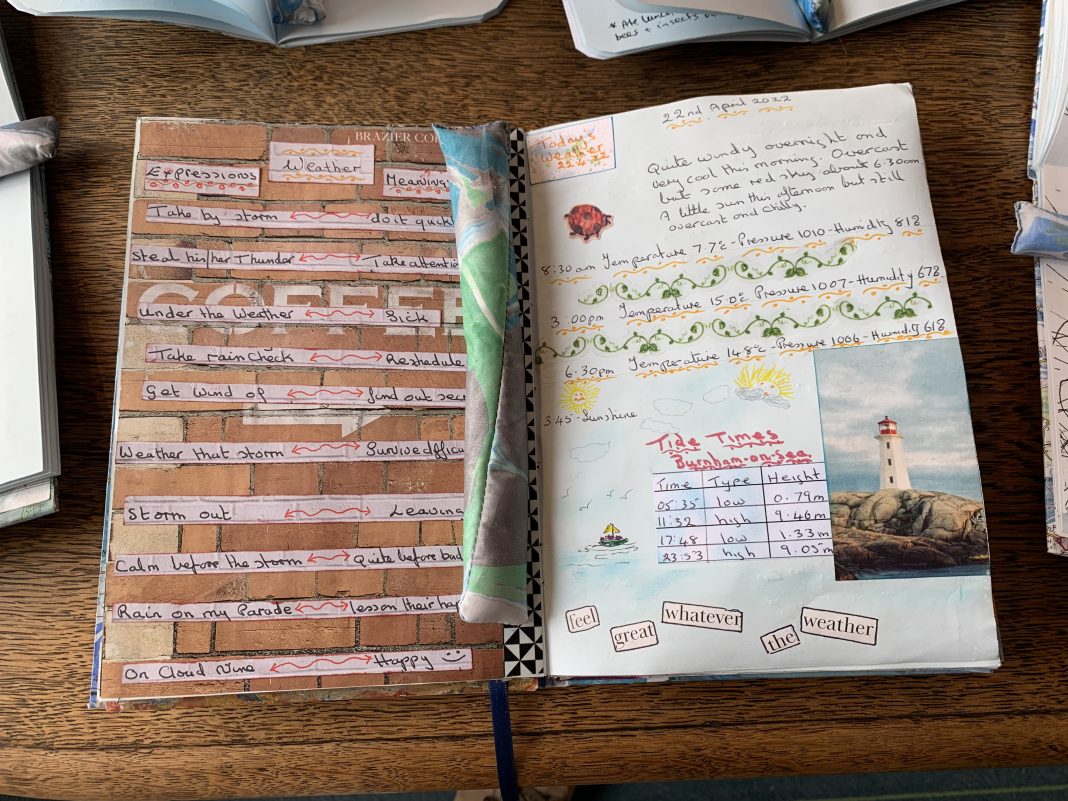 * Ate
bees + insects
BRAZIER CO
Weather
Expressions
Meaning
Take by storm do it quick
Steal his/her Thunder Take attentio
COFFEE
under the Weather Sick
Take raincheck Reshedule
Get wind of find out sec
Weather that storm Survive difficu
Storm out Leaving
Calm before the storm Quite before bad
Rain on my Parade lesson their ha
On Cloud Nine Happy
22nd April 2022
Today's
Weather
22.4.22
Quite windy overnight and
very cool this morning. Overcast
but some red sky about 6.30am
A little sun this afternoon but still
overcast and chilly.
8:30am Temperature 7.7°c - Pressure 1010 - Humidity 81%
3:00pm Temperature 15.0°c Pressure 1007 - Humidity 67%
6.30pm Temperature 14.8°c - Pressure 1006 - Humidity 61%
3.45 - Sunshine
Tide Times
Burnham-on-Sea
Time Type Height
05:35 low 0.79m
11:32 high 9.46m
17:48 low 1.33m
23:53 high 9.05m
feel great whatever the weather